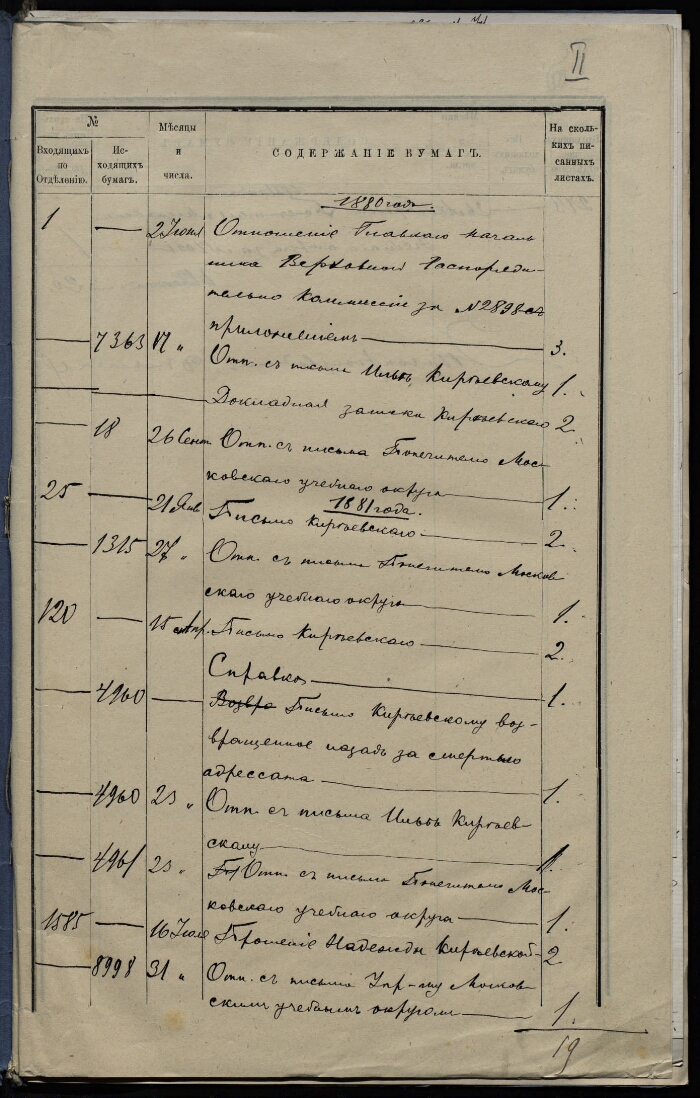 II
№
Входящихъ по Отдѣленію.
Исходящихъ бумагъ.
Мѣсяцы и числа.
СОДЕРЖАНІЕ БУМАГЪ.
На сколькихъ писанныхъ листахъ.
1880 года
1 — 2 Іюня Отношеніе Главнаго Началь
ника Верховной Распоряди-
тельно Коммиссіи за №2898 съ
приложеніемъ — 3.
— 7363 17 „ Отп. съ письма Киреевскому 1.
— Докладная записка Киреевскаго 2.
— 18 26 Сент Отп. съ письма Попечителю Мос-
ковскаго учебнаго округа — 1.
1881 года.
25 — 21 Янв Письмо Киреевскаго — 2.
— 1315 27 „ Отп. съ письма Попечителю Москов
скаго учебнаго округа — 1.
120 — 15 Апр. Письмо Киреевскаго — 2.
Справка — 1.
— 4960 — Возвра Письмо Киреевскому воз-
вращенное назадъ за смертью
адрессата — 1.
— 4960 23 „ Отп. съ письма Киреев-
скому — 1.
— 4961 23 „ Отп. съ письма Попечителю Мос-
ковскаго учебнаго округа — 1.
1585 — 16 Іюля Прошеніе Надежды Киреевской — 2
— 8998 31 „ Отп. съ письма Упр-му Москов
скимъ учебнымъ округомъ — 1.
19